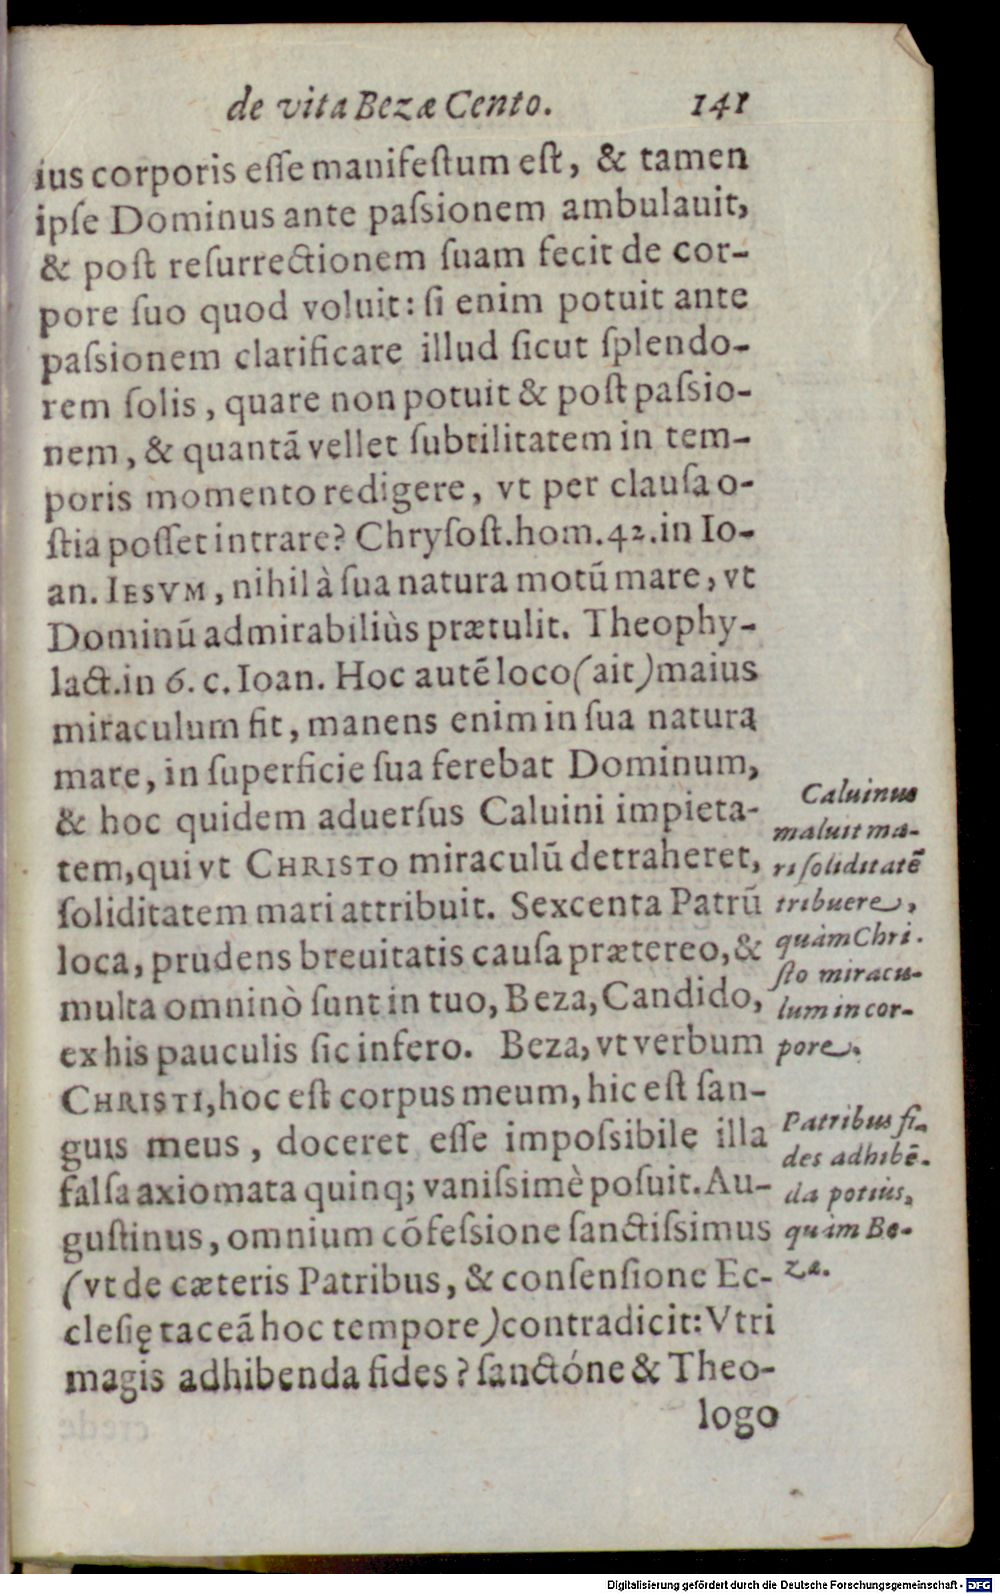 de vita Bezæ Cento. 141
ius corporis eſſe manifeſtum eſt, & tamen
ipſe Dominus ante paſsionem ambulauit,
& poſt reſurrectionem ſuam fecit de cor-
pore ſuo quod voluit: ſi enim potuit ante
paſsionem clarificare illud ſicut ſplendo-
rem ſolis, quare non potuit & poſt paſsio-
nem, & quantã vellet ſubtilitatem in tem-
poris momento redigere, vt per clauſa o-
ſtia poſſet intrare? Chryſoſt. hom. 42. in Io-
an. IESVM, nihil à ſua natura motũ mare, vt
Dominũ admirabiliùs prætulit. Theophy-
lact. in 6. c. Ioan. Hoc autẽ loco (ait) maius
miraculum fit, manens enim in ſua natura
mare, in ſuperficie ſua ferebat Dominum,
& hoc quidem aduerſus Caluini impieta-
tem, qui vt CHRISTO miraculũ detraheret,
ſoliditatem mari attribuit. Sexcenta Patrũ
loca, prudens breuitatis cauſa prætereo, &
multa omninò ſunt in tuo, Beza, Candido,
ex his pauculis ſic infero. Beza, vt verbum
CHRISTI, hoc eſt corpus meum, hic eſt ſan-
guis meus, doceret eſſe impoſsibile illa
falſa axiomata quinq; vaniſsimè poſuit. Au-
guſtinus, omnium cõfeſsione ſanctiſsimus
(vt de cæteris Patribus, & conſenſione Ec-
cleſię taceã hoc tempore) contradicit: Vtri
magis adhibenda fides? ſanctóne & Theo-
logo
Caluinus
maluit ma-
ri ſoliditatẽ
tribuere,
quàm Chri-
ſto miracu-
lum in cor-
pore.
Patribus fi-
des adhibẽ-
da potiùs,
quàm Be-
zæ.
Digitalisierung gefördert durch die Deutsche Forschungsgemeinschaft - DFG